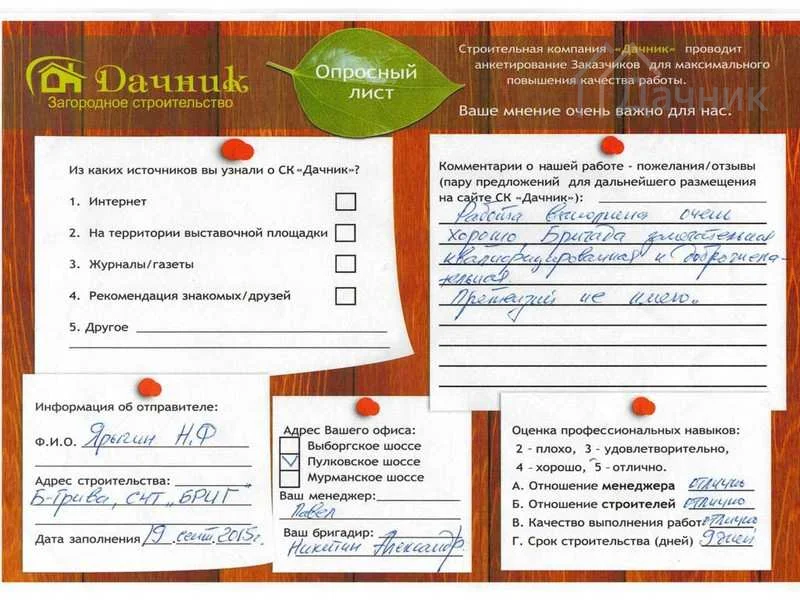 Дачник
Загородное строительство
Опросный
лист
Строительная компания «Дачник» проводит
анкетирование Заказчиков для максимального
повышения качества работы.
Ваше мнение очень важно для нас.
Дачник
Из каких источников вы узнали о СК «Дачник»?
1. Интернет
2. На территории выставочной площадки
3. Журналы/газеты
4. Рекомендация знакомых/друзей
5. Другое
Комментарии о нашей работе - пожелания/отзывы
(пару предложений для дальнейшего размещения
на сайте СК «Дачник»):
Работа выполнена очень
хорошо Бригада замечательная
квалифицированная и доброжела-
тельная
Претензий не имею
Информация об отправителе:
Ф.И.О. Ярыгин Н.Ф
Адрес строительства:
Б-Грива, СНТ „БРИГ"
Дата заполнения 19 сент. 2015г.
Адрес Вашего офиса:
Выборгское шоссе
Пулковское шоссе
Мурманское шоссе
Ваш менеджер:
Павел
Ваш бригадир:
Никитин Александр.
Оценка профессиональных навыков:
2 - плохо, 3 - удовлетворительно,
4 - хорошо, 5 - отлично.
А. Отношение менеджера отлично
Б. Отношение строителей отлично
В. Качество выполнения работ отлично
Г. Срок строительства (дней) 9 дней